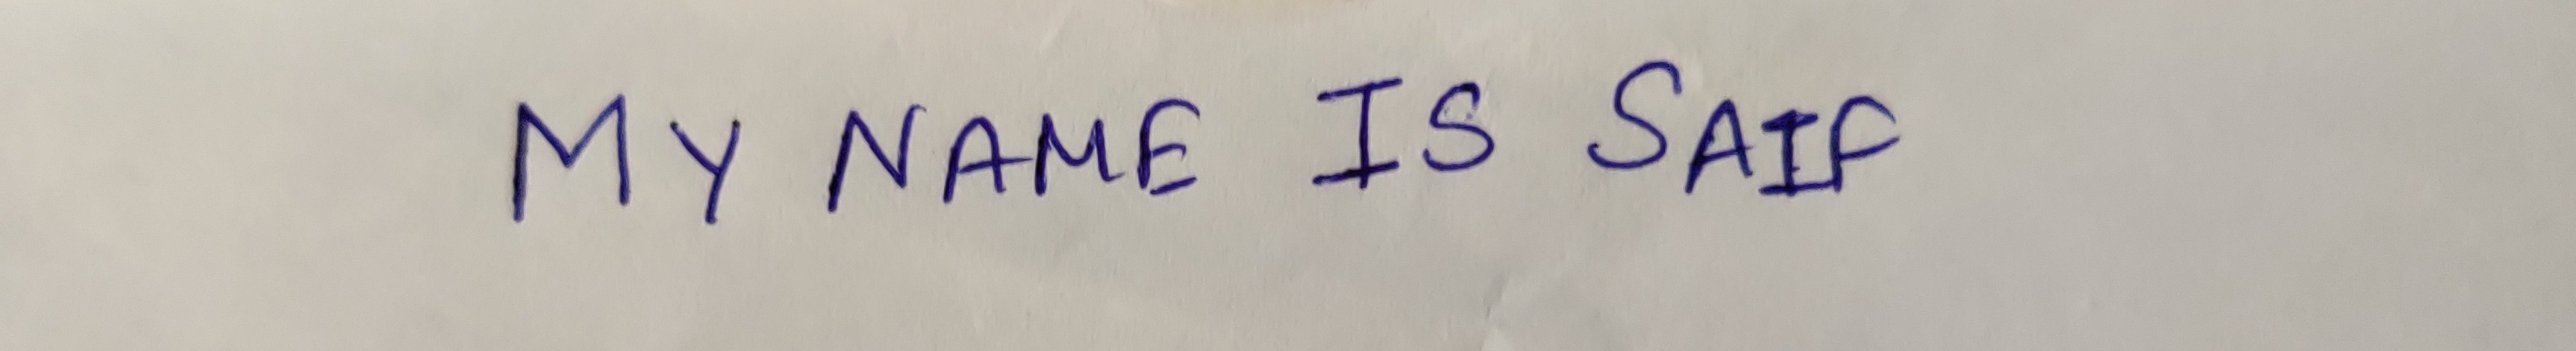 MY NAME IS SAIF